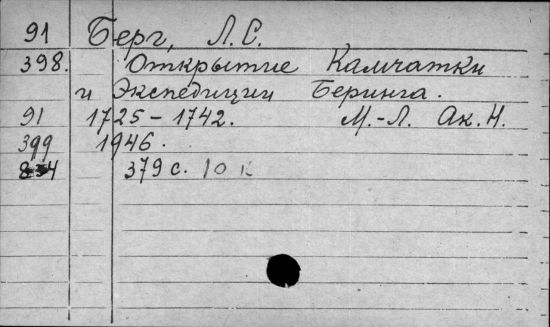 91 Берг, Л.С.
398. Открытие Камчатки
и Экспедиции Беринга.
91 1725-1742. М.-Л. Ак.Н.
399 1946.
379 с. 10 к